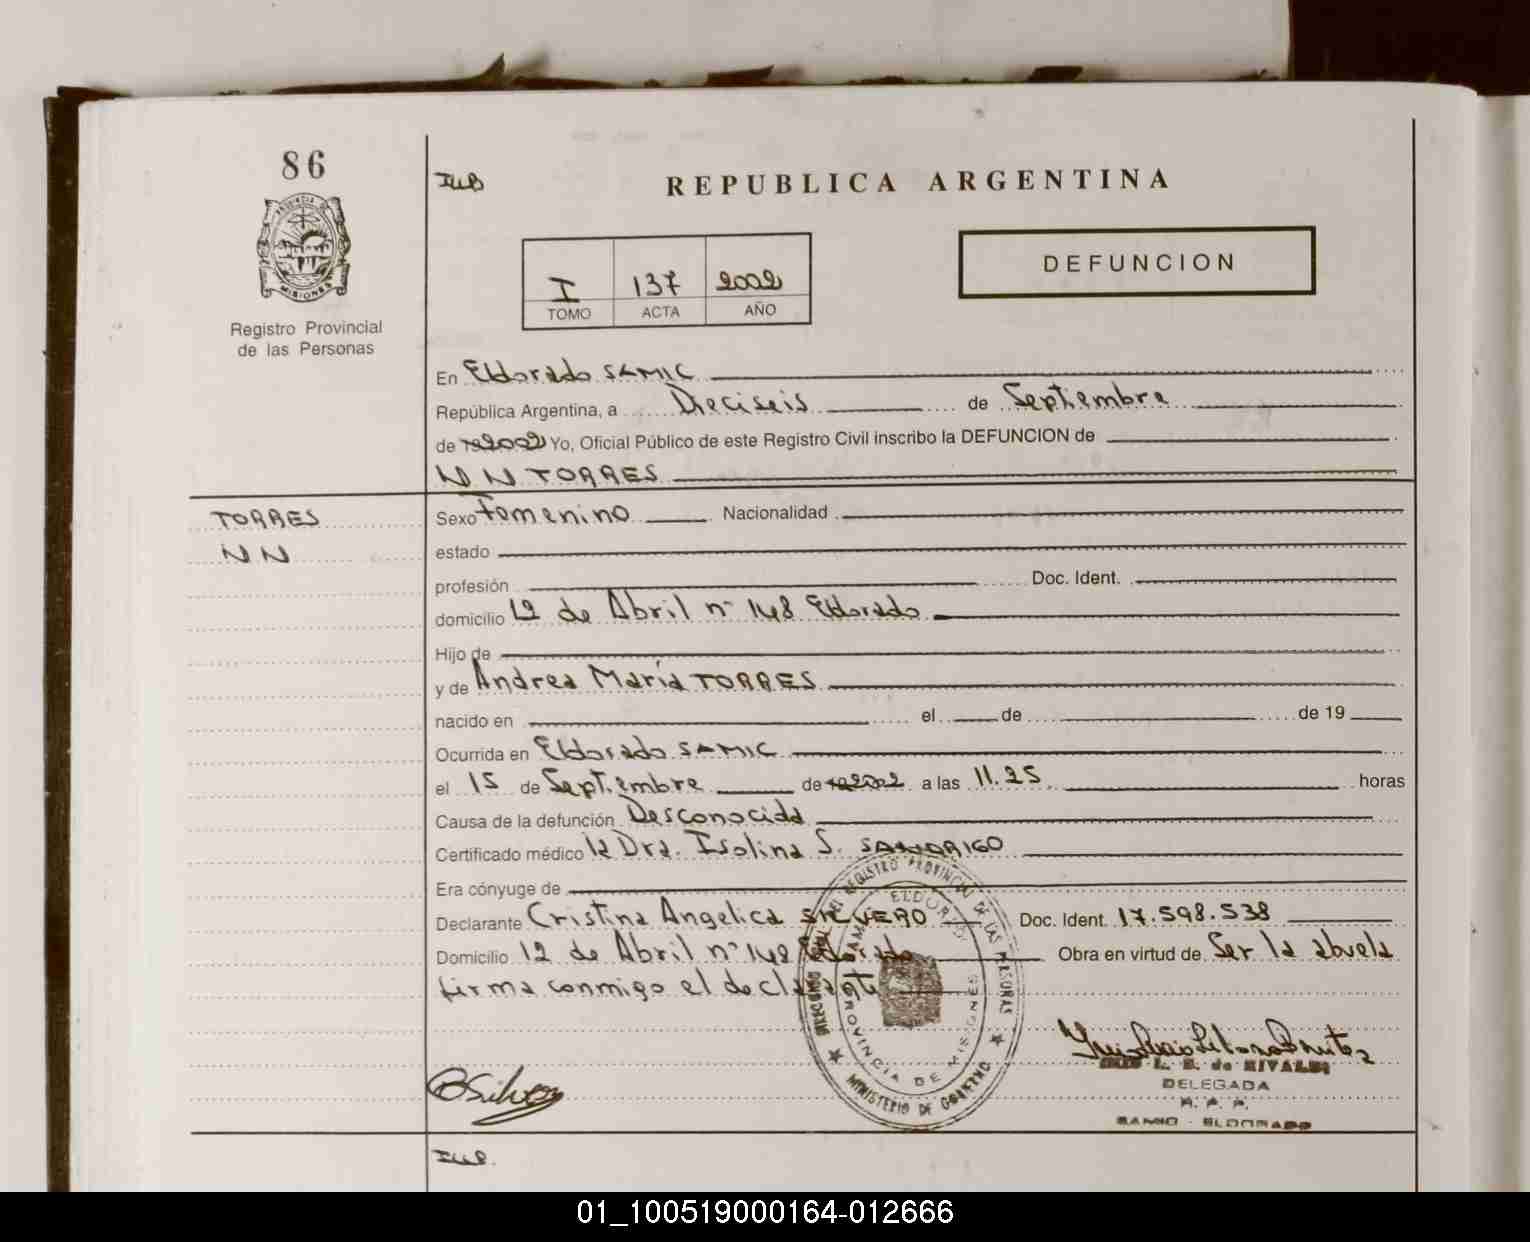 86
ILLB
REPUBLICA ARGENTINA
PROVINCIA DE
MISIONES
Registro Provincial
de las Personas
I 137 2002
TOMO ACTA AÑO
DEFUNCION
En Eldorado SAMIC
República Argentina, a Dieciseis de Septiembre
de 2002 Yo, Oficial Público de este Registro Civil inscribo la DEFUNCION de
N N TORRES
TORRES
N N
Sexo Femenino Nacionalidad
estado
profesión Doc. Ident.
domicilio 12 de Abril n° 148 Eldorado
Hijo de
y de Andrea María TORRES
nacido en el de de 19
Ocurrida en Eldorado SAMIC
el 15 de Septiembre de 2002 a las 11.25 horas
Causa de la defunción Desconocida
Certificado médico la Dra. Isolina S. SAMARIGO
Era cónyuge de
Declarante Cristina Angelica SILVERO Doc. Ident. 17.598.538
Domicilio 12 de Abril n° 148 Eldorado Obra en virtud de Ser la abuela
firma conmigo el declarante
DIRECCION GRAL. DEL REGISTRO PROVINCIAL DE LAS PERSONAS
MINISTERIO DE GOBIERNO
ELDORADO
PROVINCIA DE MISIONES
L. B. de RIVALDI
DELEGADA
R. P. P.
SAMIC - ELDORADO
ILLB.
01_100519000164-012666